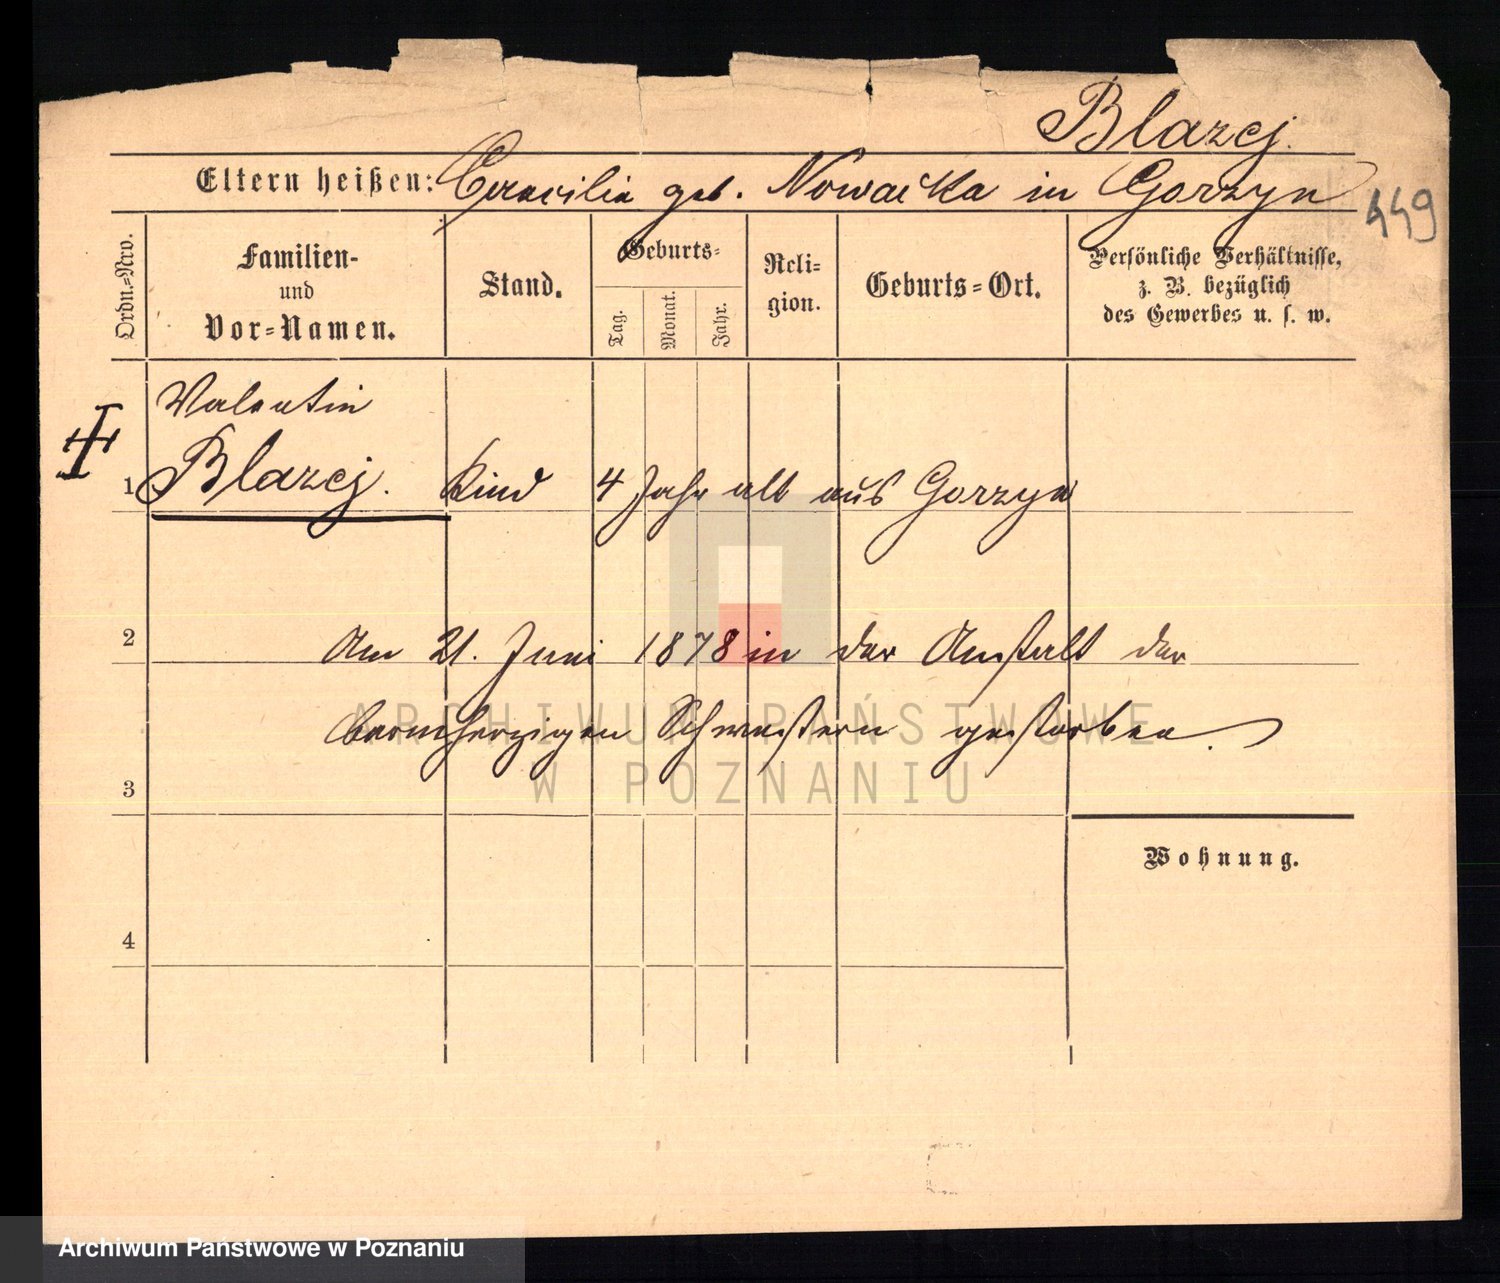 Blazej.
Eltern heißen: Caecilia geb. Nowacka in Gorzyn
449
Ordn.-Nro.
Familien-
und
Vor-Namen.
Stand.
Geburts-
Tag.
Monat.
Jahr.
Reli-
gion.
Geburts-Ort.
Persönliche Verhältnisse,
z. B. bezüglich
des Gewerbes u. s. w.
Valentin
1 Blazej. Kind 4 Jahr alt aus Gorzyn
2 Am 21. Juni 1878 in der Anstalt der
barmherzigen Schwestern gestorben.
ARCHIWUM PAŃSTWOWE
W POZNANIU
3
Wohnung.
4
Archiwum Państwowe w Poznaniu